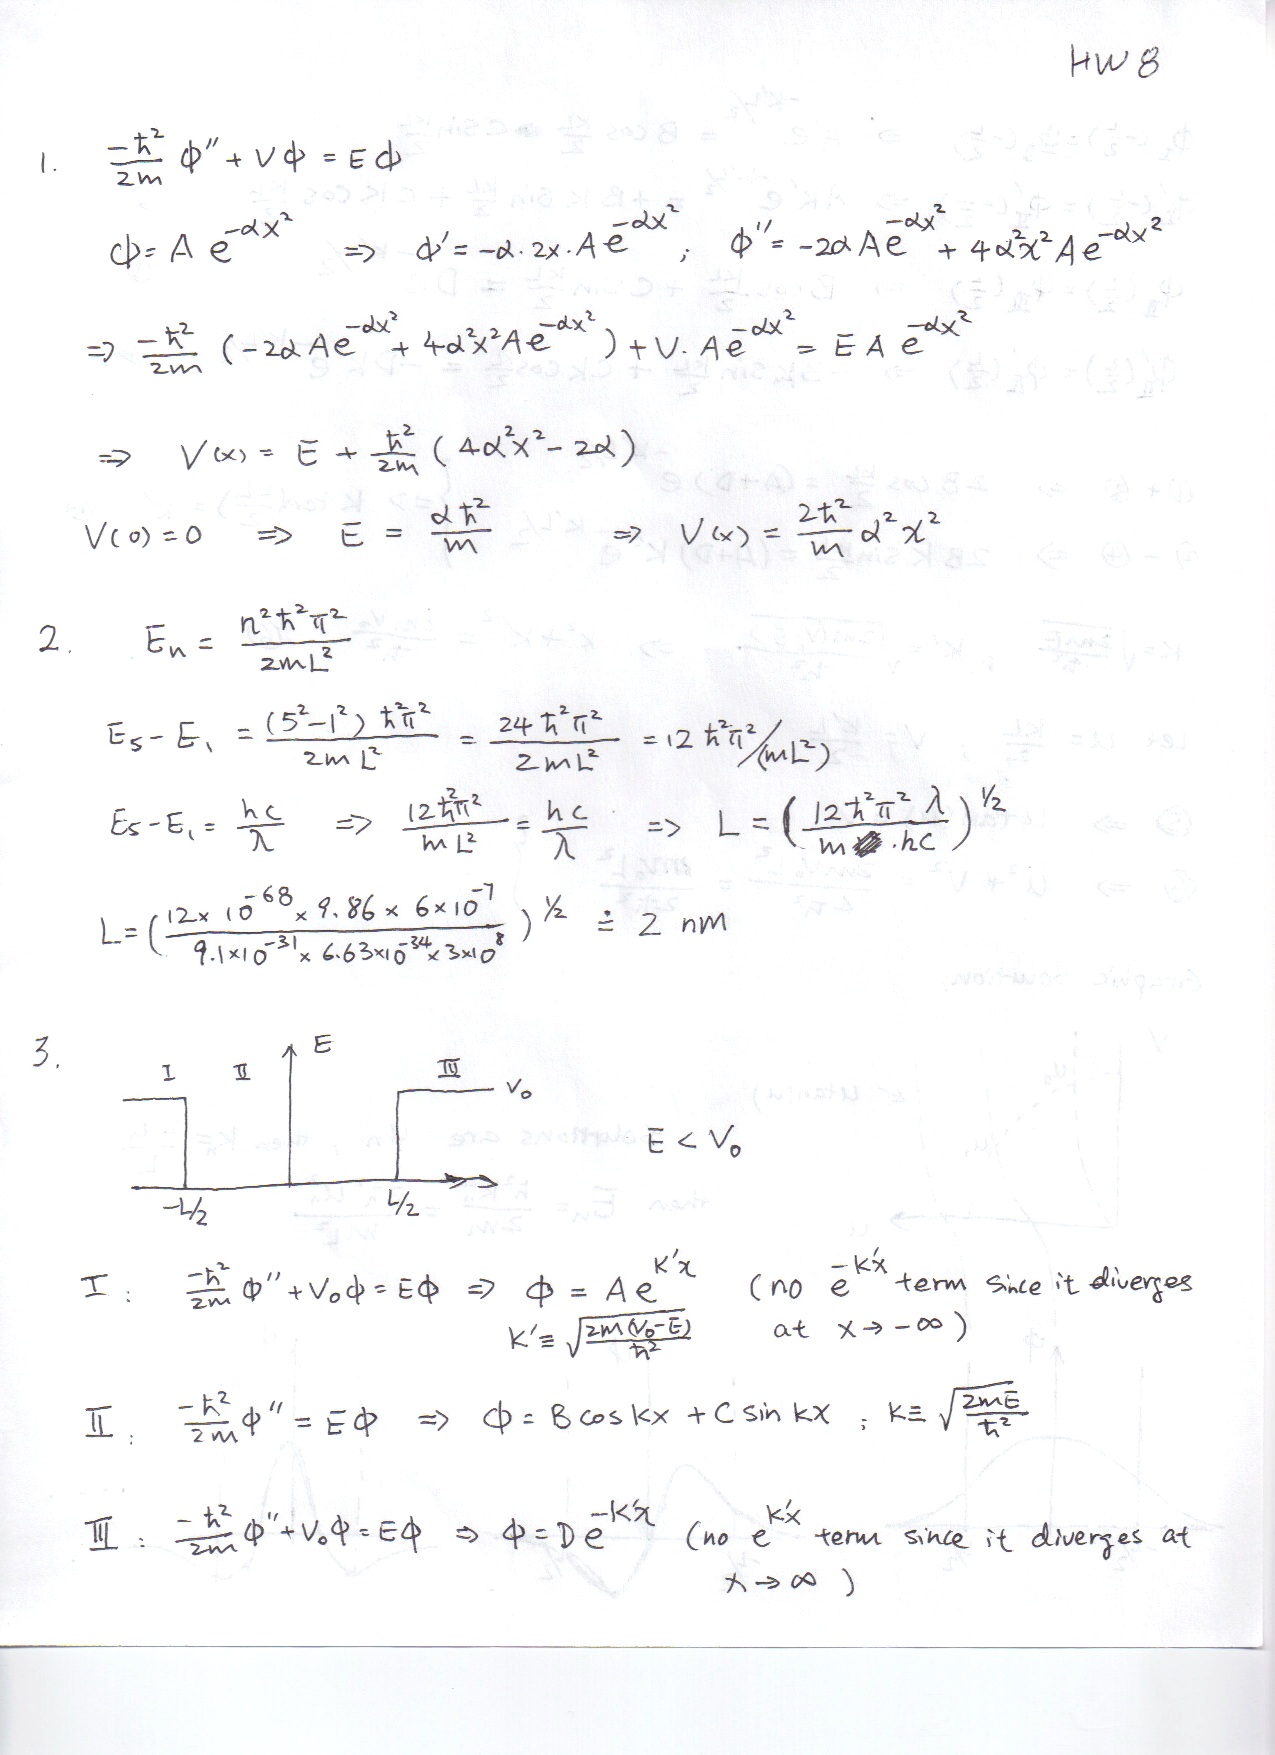 HW 8
1. -ħ²/2m ϕ'' + Vϕ = Eϕ
ϕ = A e^{-αx²} ⇒ ϕ' = -α·2x·A e^{-αx²} ; ϕ'' = -2αA e^{-αx²} + 4α²x²A e^{-αx²}
⇒ -ħ²/2m (-2αA e^{-αx²} + 4α²x²A e^{-αx²}) + V·A e^{-αx²} = E A e^{-αx²}
⇒ V(x) = E + ħ²/2m (4α²x² - 2α)
V(0) = 0 ⇒ E = αħ²/m ⇒ V(x) = 2ħ²/m α²x²
2. Eₙ = n²ħ²π²/2mL²
E₅ - E₁ = (5²-1²)ħ²π²/2mL² = 24ħ²π²/2mL² = 12ħ²π²/(mL²)
E₅ - E₁ = hc/λ ⇒ 12ħ²π²/mL² = hc/λ ⇒ L = (12ħ²π²λ/m·hc)^{1/2}
L = (12×10^{-68}×9.86×6×10^{-7}/9.1×10^{-31}×6.63×10^{-34}×3×10^{8})^{1/2} ≐ 2 nm
3.
E
I II III
V₀
E < V₀
-L/2 L/2
I : -ħ²/2m ϕ'' + V₀ϕ = Eϕ ⇒ ϕ = A e^{k'x} (no e^{-k'x} term since it diverges
k' ≡ √(2m(V₀-E)/ħ²) at x → -∞)
II : -ħ²/2m ϕ'' = Eϕ ⇒ ϕ = B cos kx + C sin kx ; k ≡ √(2mE/ħ²)
III : -ħ²/2m ϕ'' + V₀ϕ = Eϕ ⇒ ϕ = D e^{-k'x} (no e^{k'x} term since it diverges at
x → ∞)